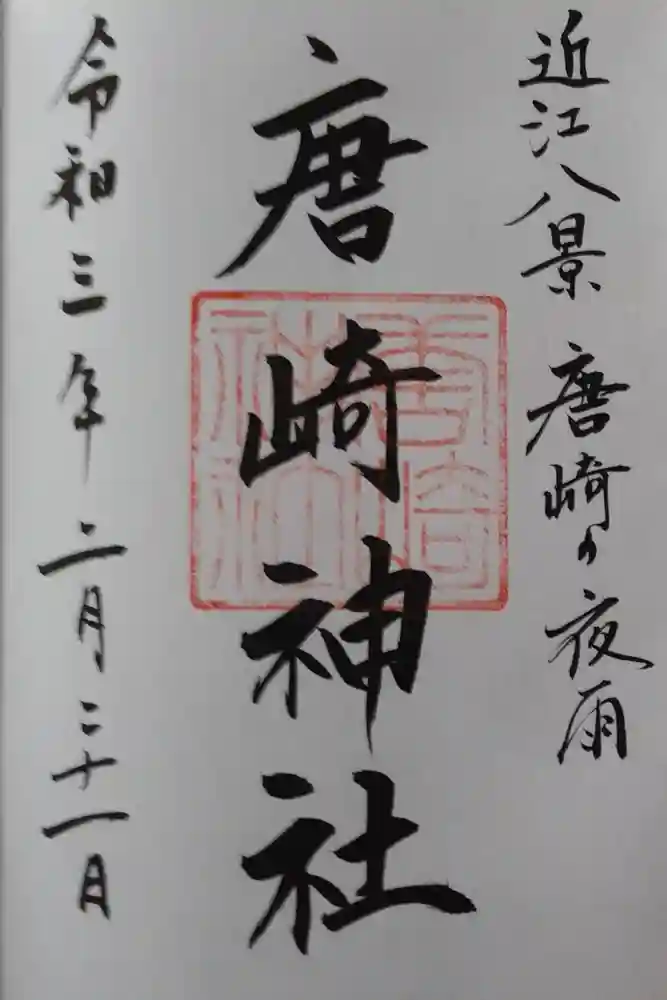 近江八景 唐崎の夜雨
唐崎神社
唐崎神社
令和三年二月二十一日